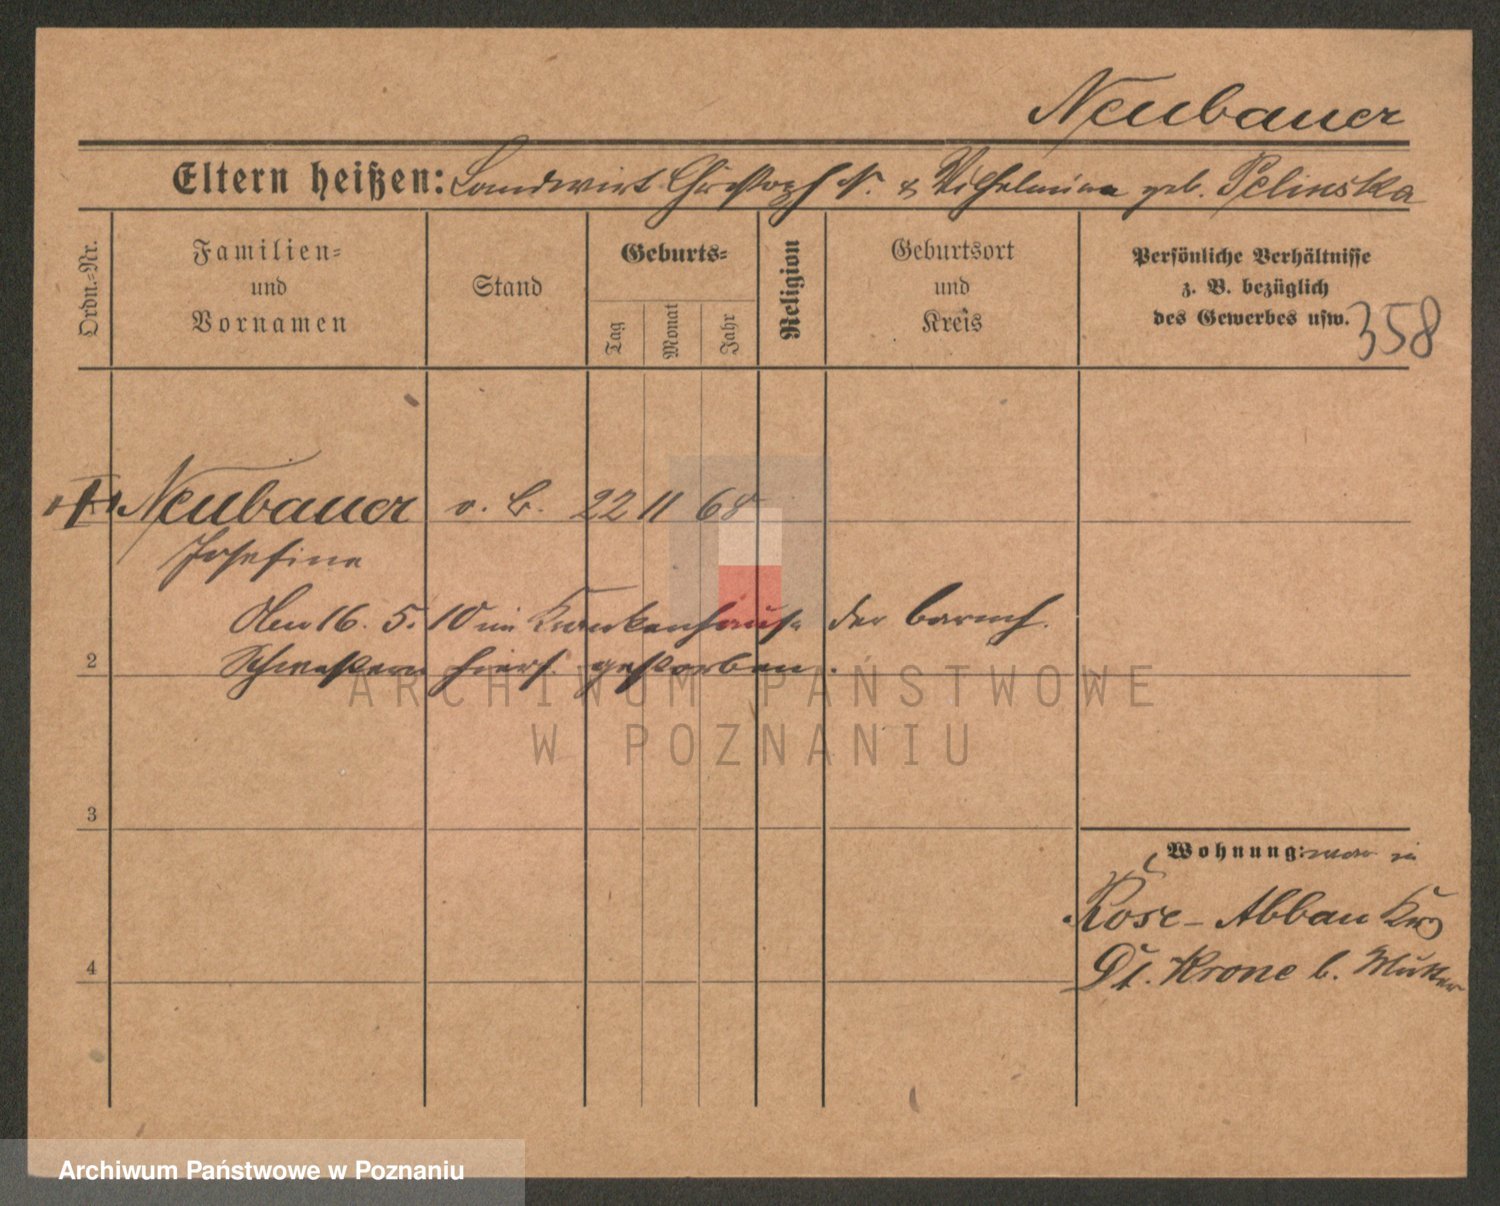 Neubauer
Eltern heißen: Landwirt Christoph N. & Wilhelmina geb. Pelinska
Ordn.-Nr.
Familien-
und
Vornamen
Stand
Geburts-
Tag
Monat
Jahr
Religion
Geburtsort
und
Kreis
Persönliche Verhältnisse
z. B. bezüglich
des Gewerbes usw.
358
Neubauer o. B. 22 11 68
Josefine
Am 16. 5. 10 im Krankenhause der barmh.
2
Schwestern hiers. gestorben.
ARCHIWUM PAŃSTWOWE
W POZNANIU
3
Wohnung: war in
Rose-Abbau Krs
4
Dt. Krone b. Mutter
Archiwum Państwowe w Poznaniu